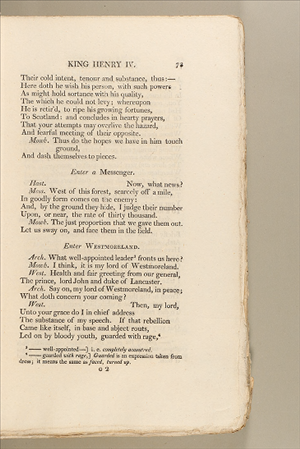 KING HENRY IV. 75
Their cold intent, tenour and substance, thus:—
Here doth he wish his person, with such powers
As might hold sortance with his quality,
The which he could not levy; whereupon
He is retir'd, to ripe his growing fortunes,
To Scotland: and concludes in hearty prayers,
That your attempts may overlive the hazard,
And fearful meeting of their opposite.
Mowb. Thus do the hopes we have in him touch
ground,
And dash themselves to pieces.
Enter a Messenger.
Hast. Now, what news?
Mess. West of this forest, scarcely off a mile,
In goodly form comes on the enemy:
And, by the ground they hide, I judge their number
Upon, or near, the rate of thirty thousand.
Mowb. The just proportion that we gave them out.
Let us sway on, and face them in the field.
Enter WESTMORELAND.
Arch. What well-appointed leader⁵ fronts us here?
Mowb. I think, it is my lord of Westmoreland.
West. Health and fair greeting from our general,
The prince, lord John and duke of Lancaster.
Arch. Say on, my lord of Westmoreland, in peace;
What doth concern your coming?
West. Then, my lord,
Unto your grace do I in chief address
The substance of my speech. If that rebellion
Came like itself, in base and abject routs,
Led on by bloody youth, guarded with rage,⁶
⁵ —— well-appointed—] i. e. completely accoutred.
⁶ —— guarded with rage,] Guarded is an expression taken from
dress; it means the same as faced, turned up.
G 2